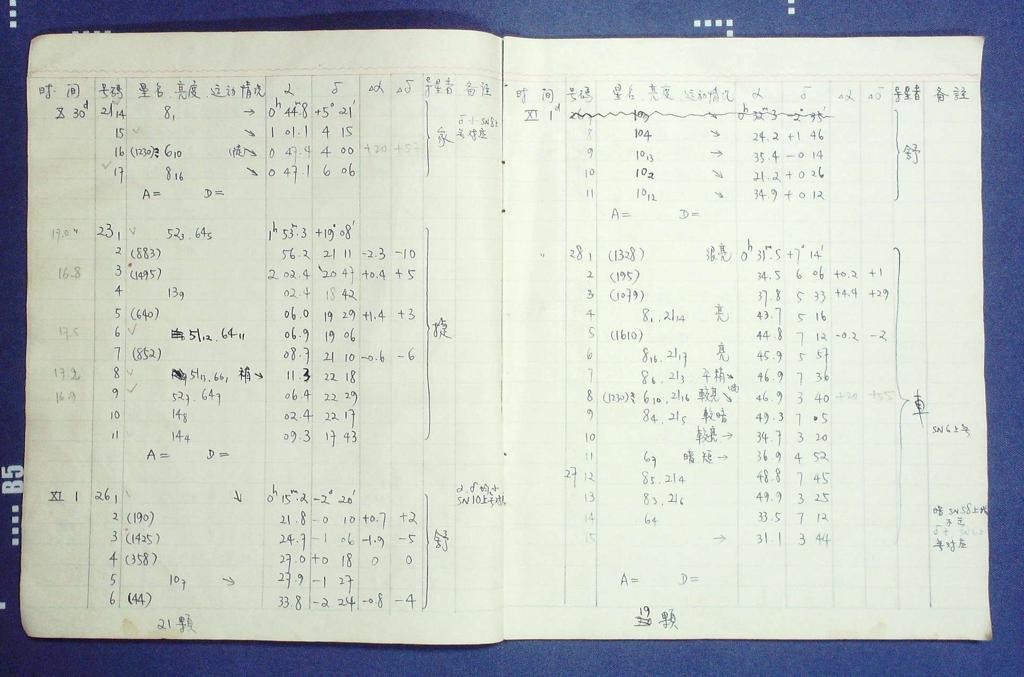 时 间 号码 星名、亮度、运动情况 α δ Δα Δδ 寻星者 备註
X 30ᵈ 21₁₄ 8₁ 0ʰ 44ᵐ.8 +5° 21′
15 ✓ 1 01.1 4 15
16 (1230)? 6₁₀ ↘ 0 47.4 4 00 +20 +57
✓ 17 8₁₆ ↘ 0 47.1 6 06
A= D=
23₁ ✓ 52₃, 64₅ 1ʰ 53ᵐ.3 +19° 08′
2 (883) 56.2 21 11 -2.3 -10
16.8 3 (1495) 2 02.4 20 47 +0.4 +5
4 13₉ 02.4 18 42
5 (640) 06.0 19 29 +1.4 +3
17.5 6 ✓ 51₁₂, 64₁₁ 06.9 19 06
7 (852) 08.7 21 10 -0.6 -6
17.2 8 ✓ 51₁₁, 66₁ 稍↘ 11.3 22 18
16.9 9 ✓ 52₇, 64₇ 06.4 22 29
10 14₈ 02.4 22 17
11 14₄ 09.3 17 43
A= D=
XI 1 26₁ ↘ 0ʰ 15ᵐ.2 -2° 20′
2 (190) 21.8 -0 10 +0.7 +2
3 (1425) 24.7 -1 06 -1.9 -5
4 (358) 27.0 +0 18 0 0
舒
5 10₇ → 27.9 -1 27
6 (44) 33.8 -2 24 -0.8 -4
21 顆
时 间 号码 星名、亮度、运动情况 α δ Δα Δδ 寻星者 备註
XI 1ᵈ
8 10₄ → 24.2 +1 46
9 10₁₃ → 35.4 -0 14 舒
10 10₂ → 21.2 +0 26
11 10₁₂ → 34.9 +0 12
A= D=
〃 28₁ (1328) 很亮 0ʰ 31ᵐ.5 +7° 14′
2 (195) 34.5 6 06 +0.2 +1
3 (1079) 37.8 5 33 +4.4 +29
4 8₁, 21₁₄ 亮 43.7 5 16
5 (1610) 44.8 7 12 -0.2 -2
6 8₁₆, 21₁₇ 亮 45.9 5 57
7 8₆, 21₃ 46.9 7 36
8 (1230)? 6₁₀, 21₁₆ 較亮↘ 46.9 3 40 +20 +55
車
9 8₄, 21₅ 較暗 49.3 7 05
10 較亮 → 34.7 3 20
11 6₇ 暗 短 → 36.9 4 52
27 12 8₅, 21₄ 48.8 7 45
13 8₃, 21₆ 49.9 3 25
14 6₄ 33.5 7 12
15 → 31.1 3 44
A= D=
19 顆
B5